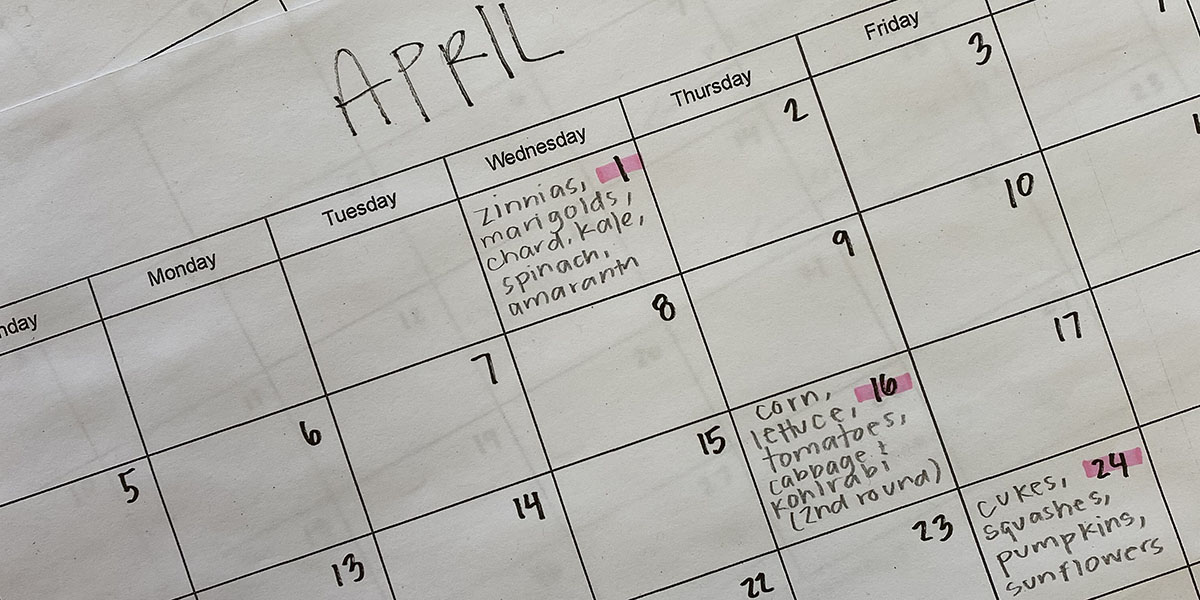 APRIL
nday Monday Tuesday Wednesday Thursday Friday
1
zinnias,
marigolds,
chard, kale,
spinach,
amaranth
2
3
5
6
7
8
9
10
13
14
15
16
corn,
lettuce,
tomatoes,
cabbage &
kohlrabi
(2nd round)
17
22
23
24
cukes,
squashes,
pumpkins,
sunflowers